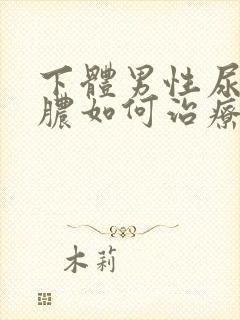 下體男性尿
膿如何治療
木莉